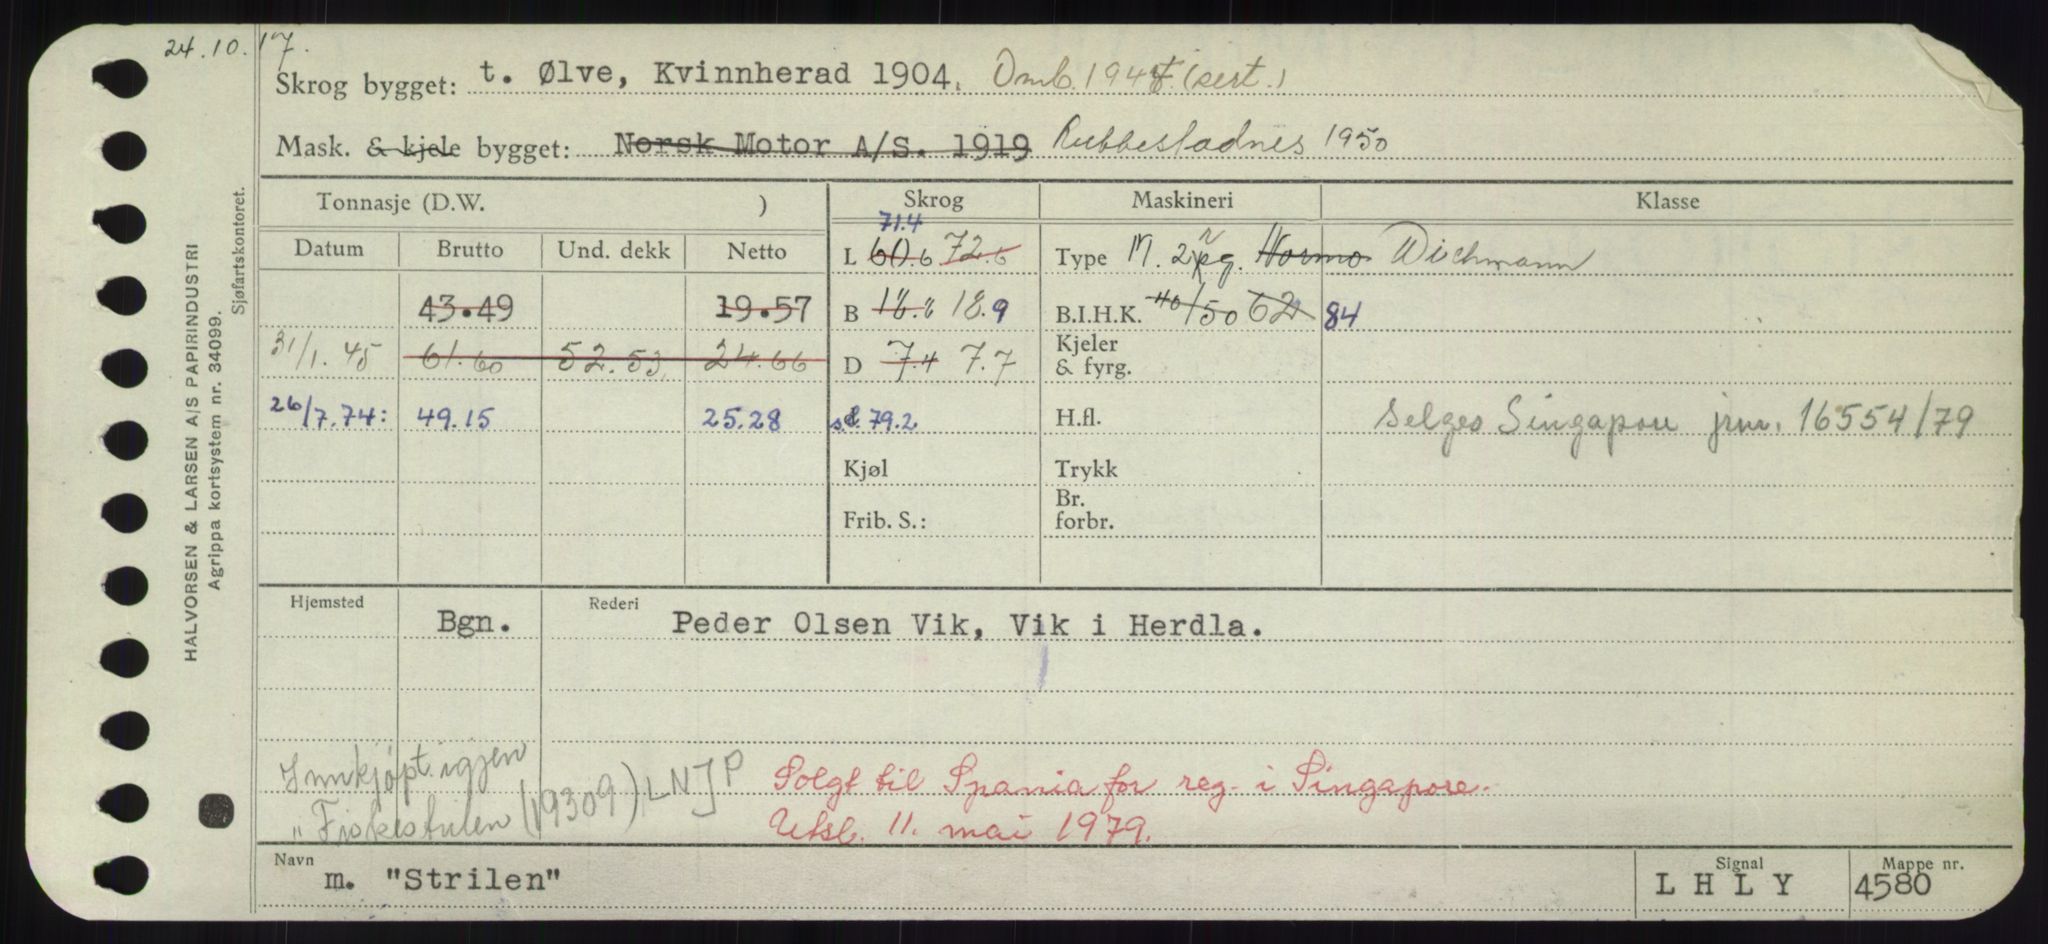 24.10.17.
Skrog bygget: t. Ølve, Kvinnherad 1904. Omb. 194 (sert.)
Mask. & kjele bygget: Norsk Motor A/S. 1919 Rubbestadnes 1950
Tonnasje (D.W. ) Skrog Maskineri Klasse
71.4
Datum Brutto Und. dekk Netto L 60.6 72.6 Type M. 2 Normo Wichmann
43.49 19.57 B 18.9 B.I.H.K. 40/50 62 84
31/1.45 61.60 52.53 24.66 D 7.4 7.7 Kjeler & fyrg.
26/7.74: 49.15 25.28 79.2 H.fl. selges Singapore jrnr. 16554/79
Kjøl Trykk
Frib. S.: Br. forbr.
Hjemsted Bgn. Rederi Peder Olsen Vik, Vik i Herdla.
Innkjøpt igjen
"Fiskestrilen (19309) LNJP
Solgt til Spania for reg. i Singapore.
Utsl. 11. mai 1979.
Navn m. "Strilen" Signal L H L Y Mappe nr. 4580
HALVORSEN & LARSEN A/S PAPIRINDUSTRI
Agrippa kortsystem nr. 34099.
Sjøfartskontoret.